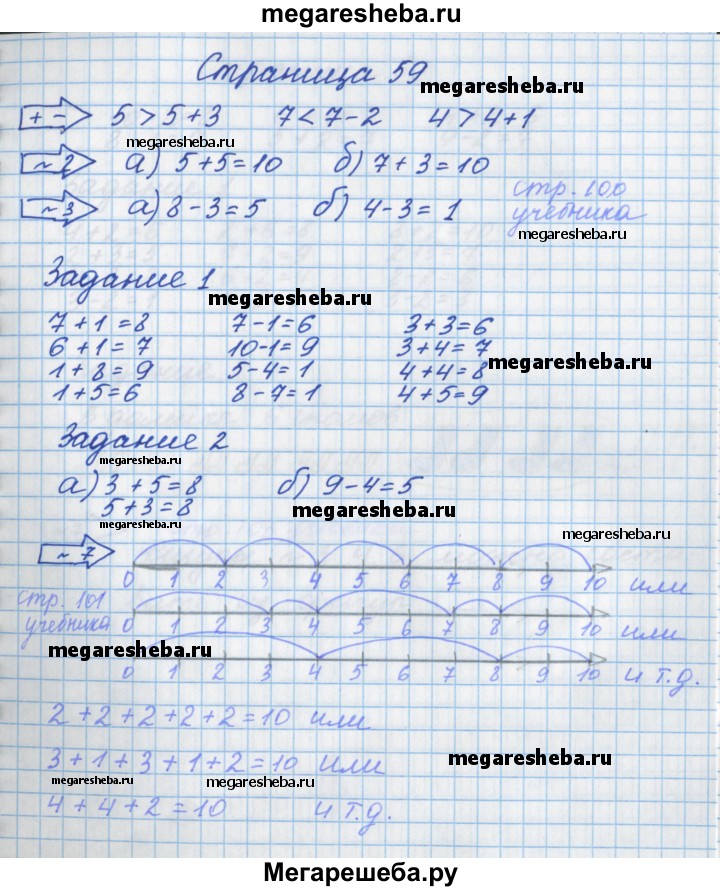 megaresheba.ru
Страница 59
megaresheba.ru
+ - 5 > 5 + 3 7 < 7 - 2 4 > 4 + 1
megaresheba.ru megaresheba.ru
~ 2 а) 5 + 5 = 10 б) 7 + 3 = 10
~ 3 а) 8 - 3 = 5 б) 4 - 3 = 1
стр. 100
учебника
megaresheba.ru
Задание 1
megaresheba.ru
7 + 1 = 8 7 - 1 = 6 3 + 3 = 6
6 + 1 = 7 10 - 1 = 9 3 + 4 = 7
megaresheba.ru
1 + 8 = 9 5 - 4 = 1 4 + 4 = 8
1 + 5 = 6 8 - 7 = 1 4 + 5 = 9
Задание 2
megaresheba.ru
а) 3 + 5 = 8 б) 9 - 4 = 5
5 + 3 = 8
megaresheba.ru
megaresheba.ru
megaresheba.ru
~ 7
0 1 2 3 4 5 6 7 8 9 10 или
стр. 101
учебника
0 1 2 3 4 5 6 7 8 9 10 или
megaresheba.ru
0 1 2 3 4 5 6 7 8 9 10 и т.д.
2 + 2 + 2 + 2 + 2 = 10 или
3 + 1 + 3 + 1 + 2 = 10 или
megaresheba.ru
megaresheba.ru megaresheba.ru
4 + 4 + 2 = 10 и т.д.
Мегарешеба.ру